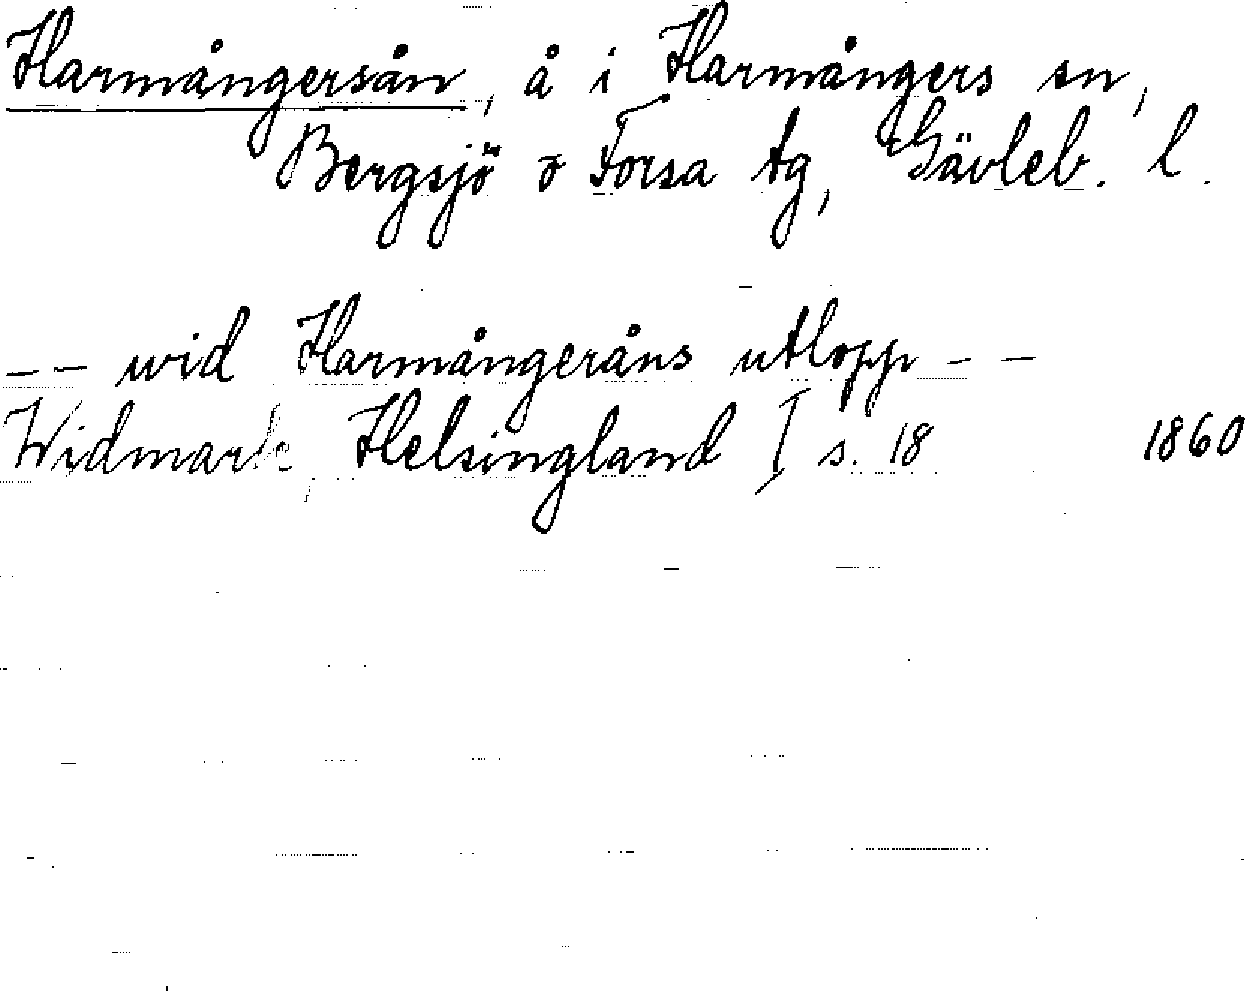 Harmångersån, å i Harmångers sn,
Bergsjö o Forsa tg, Gävleb. l.
-- wid Harmångeråns utlopp --
Widmark, Helsingland I s. 18 1860